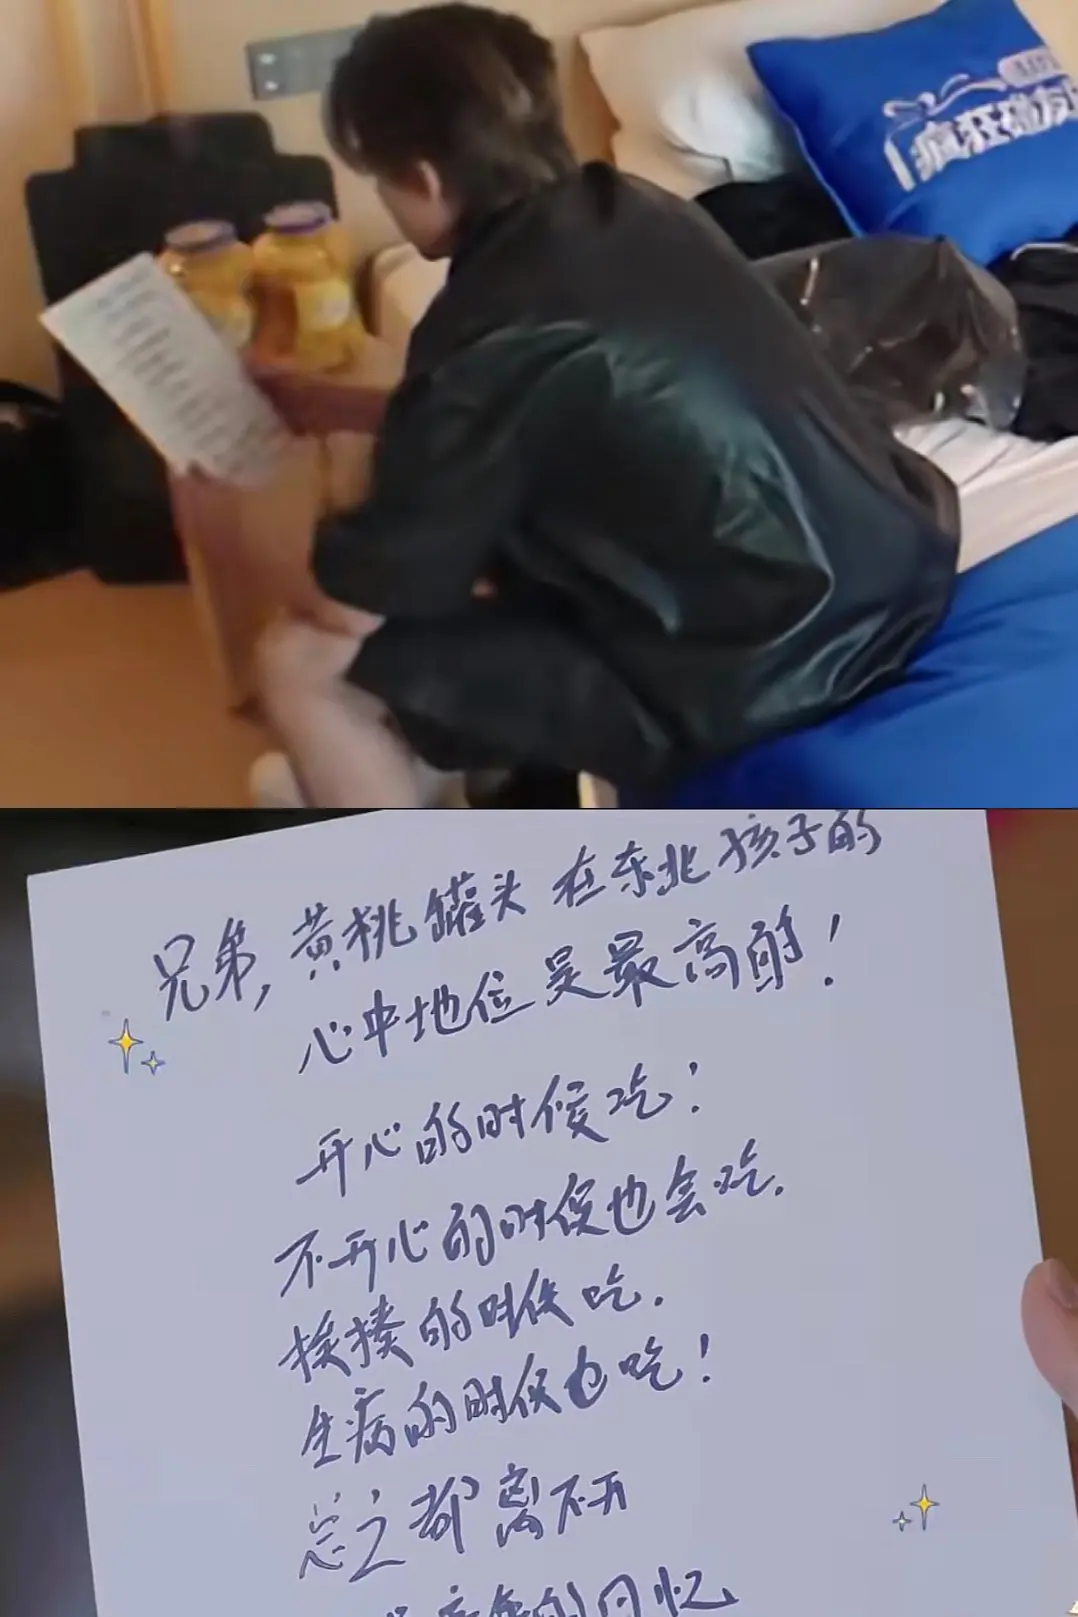 疯狂碰友
兄弟,黄桃罐头在东北孩子的
心中地位是最高的!
开心的时候吃!
不开心的时候也会吃.
挨揍的时候吃.
生病的时候也吃!
总之都离不开
的回忆